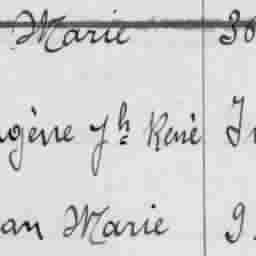 Marie 30
gène Jh René J
an Marie 9